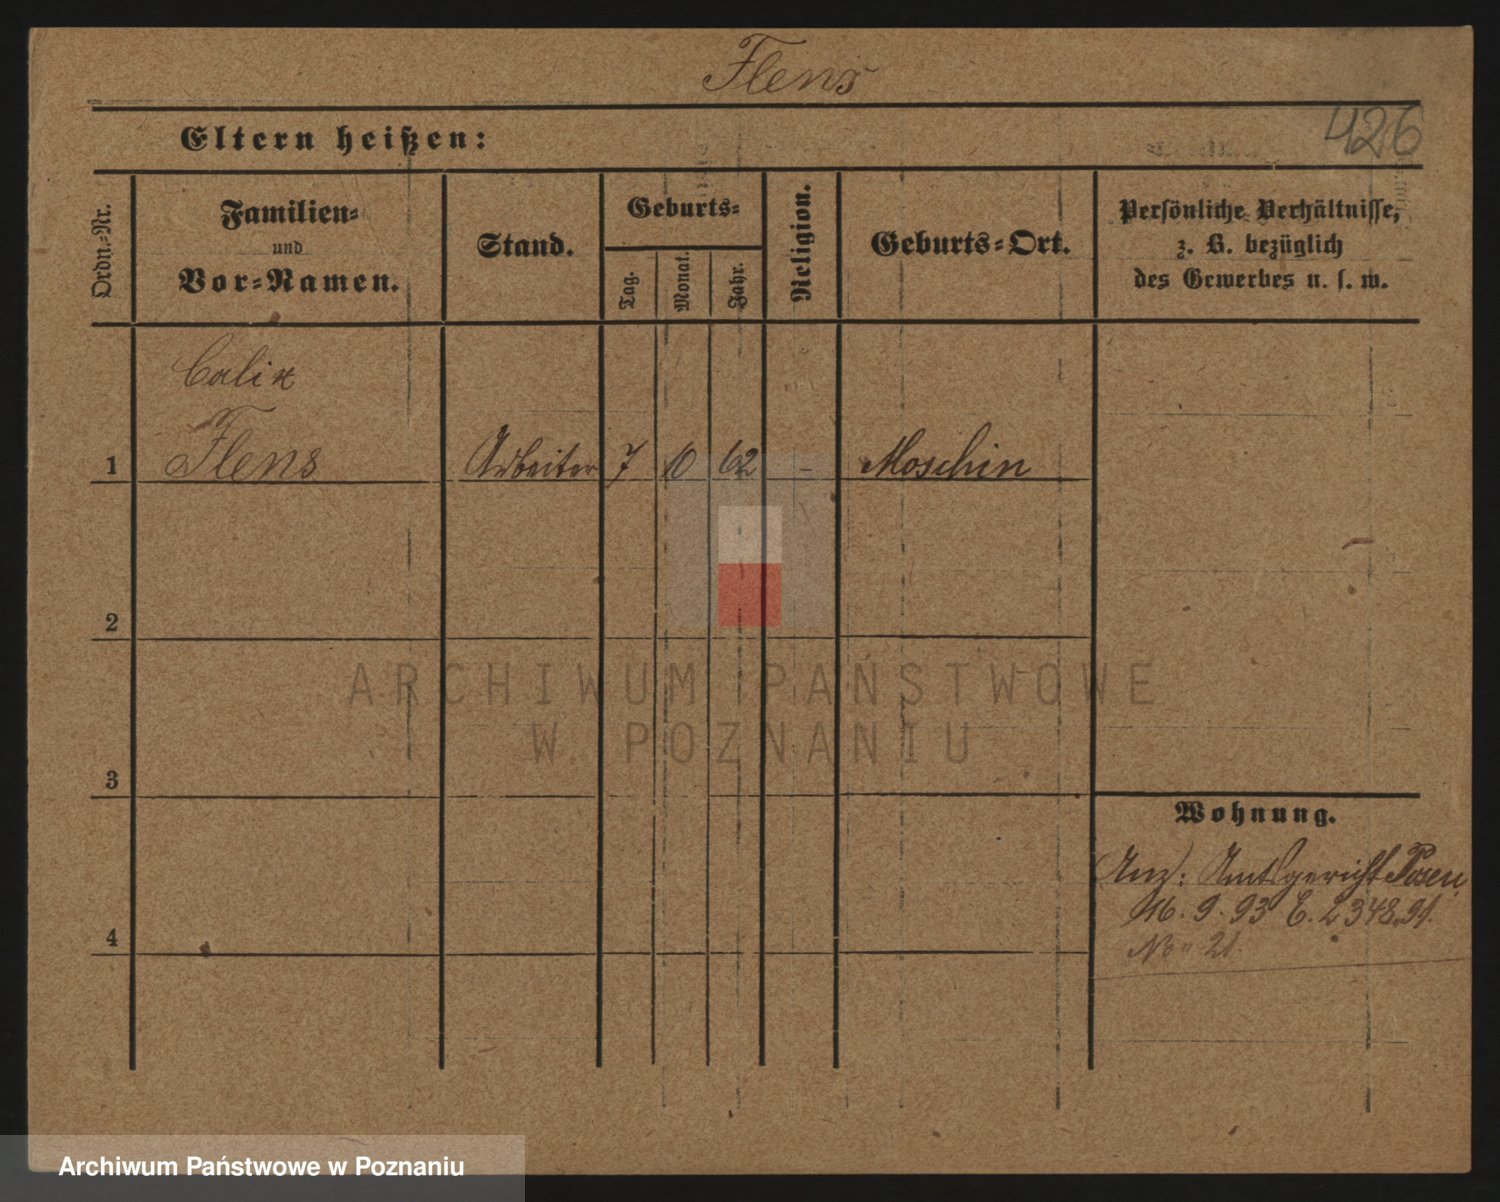 Flens
426
Eltern heißen:
Ordn.-Nr.
Familien-
und
Vor-Namen.
Stand.
Geburts-
Tag.
Monat.
Jahr.
Religion.
Geburts-Ort.
Persönliche Verhältnisse,
z. B. bezüglich
des Gewerbes u. s. w.
Calix
1 Flens Arbeiter 7 10 62 - Moschin
2
3
4
Wohnung.
Anz: Amtsgericht Posen
16. 9. 93 C. 2348.91.
No 21.
ARCHIWUM PAŃSTWOWE
W POZNANIU
Archiwum Państwowe w Poznaniu